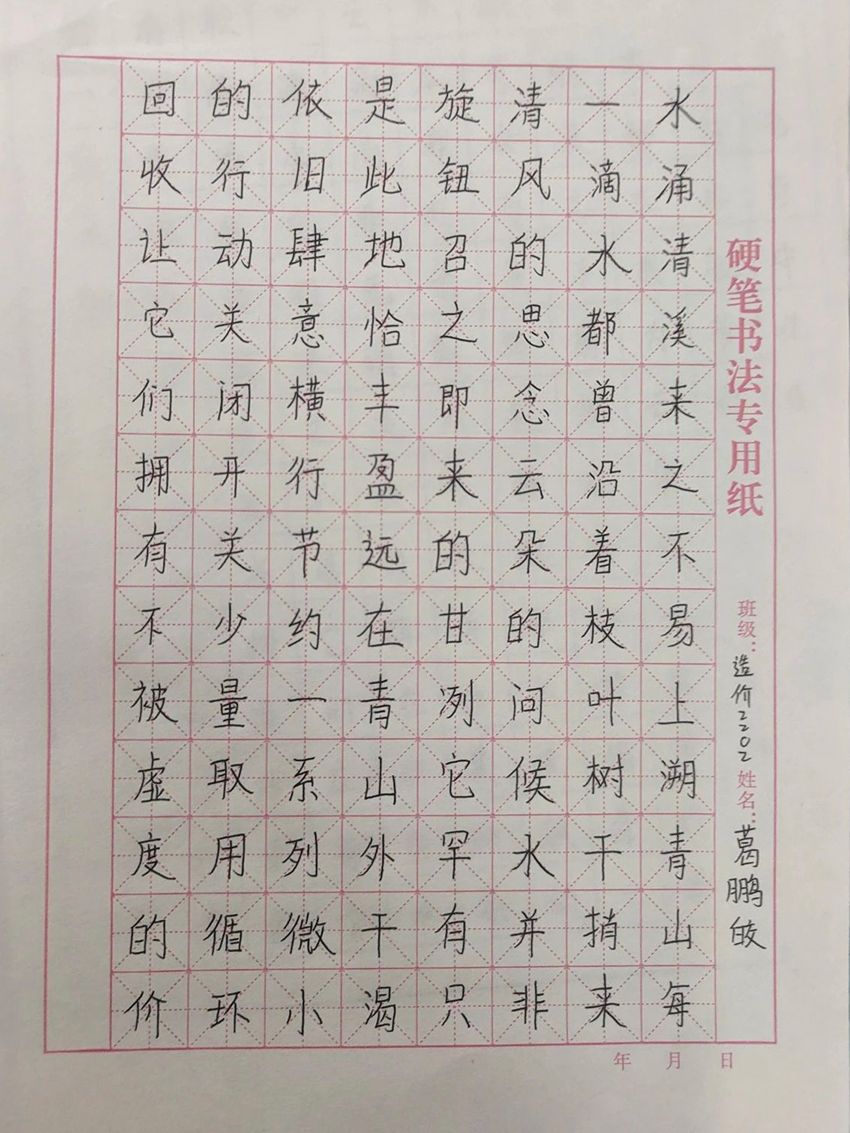 硬笔书法专用纸
班级：造价2202 姓名：葛鹏皎
水涌清溪来之不易上溯青山每
一滴水都曾沿着枝叶树干捎来
清风的思念云朵的问候水并非
旋钮召之即来的甘冽它罕有只
是此地恰丰盈远在青山外干渴
依旧肆意横行节约一系列微小
的行动关闭开关少量取用循环
回收让它们拥有不被虚度的价
年 月 日